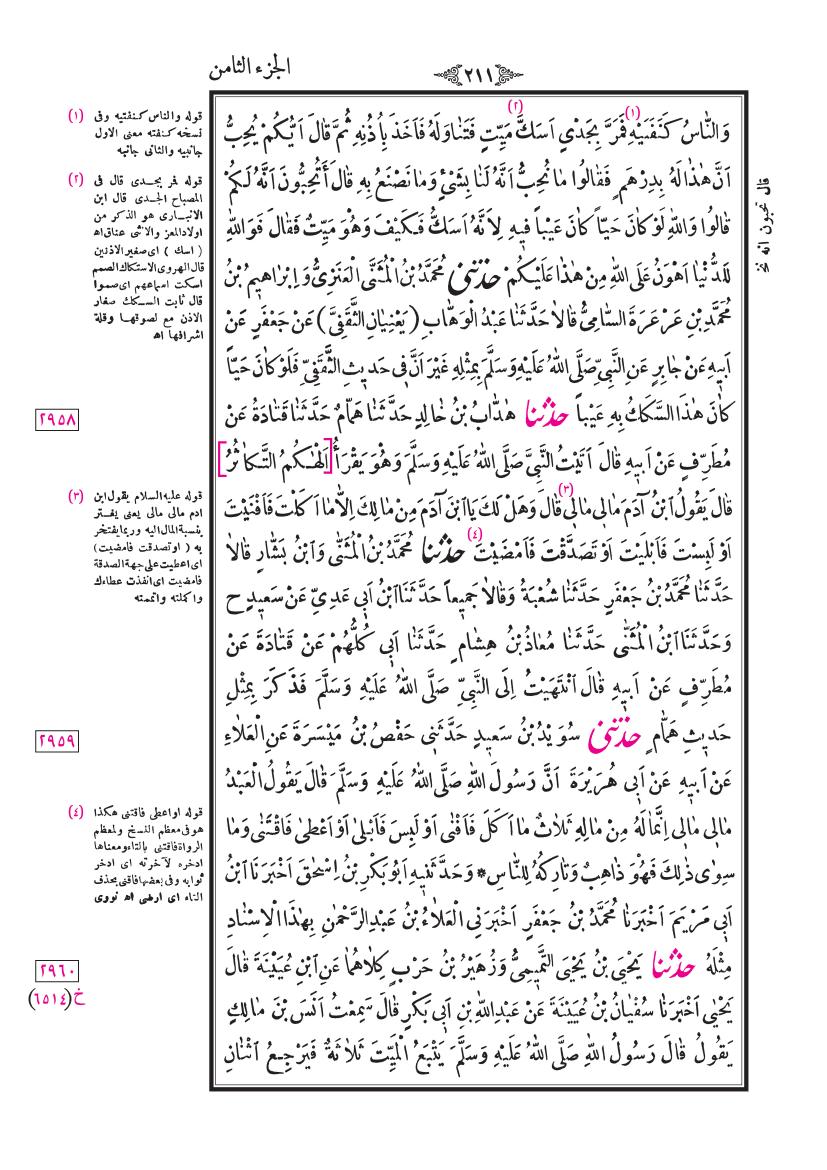 الجزء الثامن
٢١١
وَالنَّاسُ كَنَفَتَيْهِ (١) فَمَرَّ بِجَدْيٍ اَسَكَّ (٢) مَيِّتٍ فَتَنَاوَلَهُ فَاَخَذَ بِاُذُنِهِ ثُمَّ قَالَ اَيُّكُمْ يُحِبُّ
اَنَّ هٰذَا لَهُ بِدِرْهَمٍ فَقَالُوا مَا نُحِبُّ اَنَّهُ لَنَا بِشَىْءٍ وَمَا نَصْنَعُ بِهِ قَالَ أَتُحِبُّونَ اَنَّهُ لَكُمْ
قَالُوا وَاللّٰهِ لَوْ كَانَ حَيّاً كَانَ عَيْباً فِيهِ لِاَنَّهُ اَسَكُّ فَكَيْفَ وَهُوَ مَيِّتٌ فَقَالَ فَوَاللّٰهِ
لَلدُّنْيَا اَهْوَنُ عَلَى اللّٰهِ مِنْ هٰذَا عَلَيْكُمْ حَدَّثَنِى مُحَمَّدُ بْنُ الْمُثَنَّى الْعَنَزِىُّ وَاِبْرَاهِيمُ بْنُ
مُحَمَّدِ بْنِ عَرْعَرَةَ السَّامِىُّ قَالَا حَدَّثَنَا عَبْدُ الْوَهَّابِ (يَعْنِيَانِ الثَّقَفِىَّ) عَنْ جَعْفَرٍ عَنْ
اَبِيهِ عَنْ جَابِرٍ عَنِ النَّبِىِّ صَلَّى اللّٰهُ عَلَيْهِ وَسَلَّمَ بِمِثْلِهِ غَيْرَ اَنَّ فِى حَدِيثِ الثَّقَفِىِّ فَلَوْ كَانَ حَيّاً
كَانَ هٰذَا السَّكَكُ بِهِ عَيْباً حَدَّثَنَا هَدَّابُ بْنُ خَالِدٍ حَدَّثَنَا هَمَّامٌ حَدَّثَنَا قَتَادَةُ عَنْ
مُطَرِّفٍ عَنْ اَبِيهِ قَالَ اَتَيْتُ النَّبِىَّ صَلَّى اللّٰهُ عَلَيْهِ وَسَلَّمَ وَهُوَ يَقْرَأُ [اَلْهٰكُمُ التَّكَاثُرُ]
قَالَ يَقُولُ ابْنُ آدَمَ مَالِى مَالِى (٣) قَالَ وَهَلْ لَكَ يَا ابْنَ آدَمَ مِنْ مَالِكَ اِلَّا مَا اَكَلْتَ فَاَفْنَيْتَ
اَوْ لَبِسْتَ فَاَبْلَيْتَ اَوْ تَصَدَّقْتَ فَاَمْضَيْتَ (٤) حَدَّثَنَا مُحَمَّدُ بْنُ الْمُثَنَّى وَابْنُ بَشَّارٍ قَالَا
حَدَّثَنَا مُحَمَّدُ بْنُ جَعْفَرٍ حَدَّثَنَا شُعْبَةُ وَقَالَا جَمِيعاً حَدَّثَنَا ابْنُ اَبِى عَدِىٍّ عَنْ سَعِيدٍ ح
وَحَدَّثَنَا ابْنُ الْمُثَنَّى حَدَّثَنَا مُعَاذُ بْنُ هِشَامٍ حَدَّثَنَا اَبِى كُلُّهُمْ عَنْ قَتَادَةَ عَنْ
مُطَرِّفٍ عَنْ اَبِيهِ قَالَ انْتَهَيْتُ اِلَى النَّبِىِّ صَلَّى اللّٰهُ عَلَيْهِ وَسَلَّمَ فَذَكَرَ بِمِثْلِ
حَدِيثِ هَمَّامٍ حَدَّثَنِى سُوَيْدُ بْنُ سَعِيدٍ حَدَّثَنِى حَفْصُ بْنُ مَيْسَرَةَ عَنِ الْعَلَاءِ
عَنْ اَبِيهِ عَنْ اَبِى هُرَيْرَةَ اَنَّ رَسُولَ اللّٰهِ صَلَّى اللّٰهُ عَلَيْهِ وَسَلَّمَ قَالَ يَقُولُ الْعَبْدُ
مَالِى مَالِى اِنَّمَا لَهُ مِنْ مَالِهِ ثَلَاثٌ مَا اَكَلَ فَاَفْنَى اَوْ لَبِسَ فَاَبْلَى اَوْ اَعْطَى فَاقْتَنَى وَمَا
سِوَى ذٰلِكَ فَهُوَ ذَاهِبٌ وَتَارِكُهُ لِلنَّاسِ * وَحَدَّثَنِيهِ اَبُو بَكْرِ بْنُ اِسْحٰقَ اَخْبَرَنَا ابْنُ
اَبِى مَرْيَمَ اَخْبَرَنَا مُحَمَّدُ بْنُ جَعْفَرٍ اَخْبَرَنِى الْعَلَاءُ بْنُ عَبْدِ الرَّحْمٰنِ بِهٰذَا الْاِسْنَادِ
مِثْلَهُ حَدَّثَنَا يَحْيَى بْنُ يَحْيَى التَّمِيمِىُّ وَزُهَيْرُ بْنُ حَرْبٍ كِلَاهُمَا عَنِ ابْنِ عُيَيْنَةَ قَالَ
يَحْيٰى اَخْبَرَنَا سُفْيَانُ بْنُ عُيَيْنَةَ عَنْ عَبْدِ اللّٰهِ بْنِ اَبِى بَكْرٍ قَالَ سَمِعْتُ اَنَسَ بْنَ مَالِكٍ
يَقُولُ قَالَ رَسُولُ اللّٰهِ صَلَّى اللّٰهُ عَلَيْهِ وَسَلَّمَ يَتْبَعُ الْمَيِّتَ ثَلَاثَةٌ فَيَرْجِعُ اثْنَانِ
قال تحبون انه نخ
(١) قوله والناس كنفتيه وفى
نسخه كنفته معنى الاول
جانبيه والثانى جانبه
(٢) قوله فمر بجدى قال فى
المصباح الجدى قال ابن
الانبارى هو الذكر من
اولاد المعز والانثى عناق اه
(اسك) اى صغير الاذنين
قال الهروى الاستكاك الصمم
اسكت اسماعهم اى صموا
قال ثابت السكك صغار
الاذن مع لصوقها وقلة
اشرافها اه
٢٩٥٨
(٣) قوله عليه السلام يقول ابن
ادم مالى مالى يعنى يفتر
بنسبة المال اليه وربما يفتخر
به (او تصدقت فامضيت)
اى اعطيت على جهة الصدقة
فامضيت اى انفذت عطاءك
واكملته واتممته
٢٩٥٩
(٤) قوله او اعطى فاقتنى هكذا
هو فى معظم النسخ ولمعظم
الرواة فاقتنى بالتاء ومعناها
ادخره لآخرته اى ادخر
ثوابه وفى بعضها فاقنى بحذف
التاء اى ارضى اه نووى
٢٩٦٠
خ (٦٥١٤)